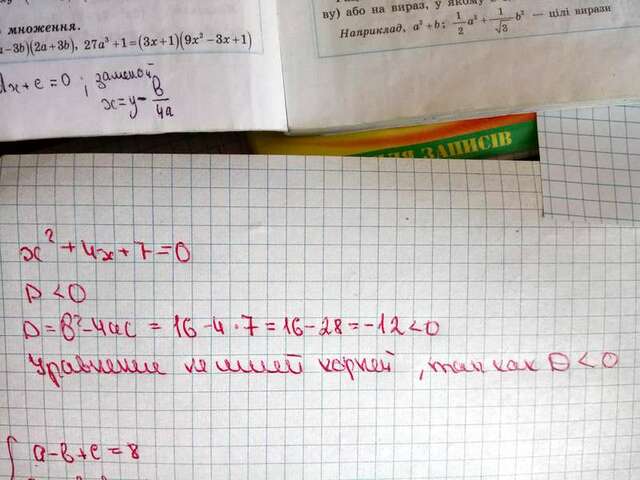 множення.
а−3b)(2a+3b), 27a³+1=(3x+1)(9x²−3x+1)
dx+e=0 ; заменой
x=y−b/4a
ву) або на вираз, у якому
Наприклад, a²+b; 1/2 a²+ 1/√3 b³ — цілі вирази
ДЛЯ ЗАПИСІВ
x²+4x+7=0
D<0
D=b²-4ac = 16-4·7=16-28=-12<0
Уравнение не имеет корней, так как D<0
a-b+c=8